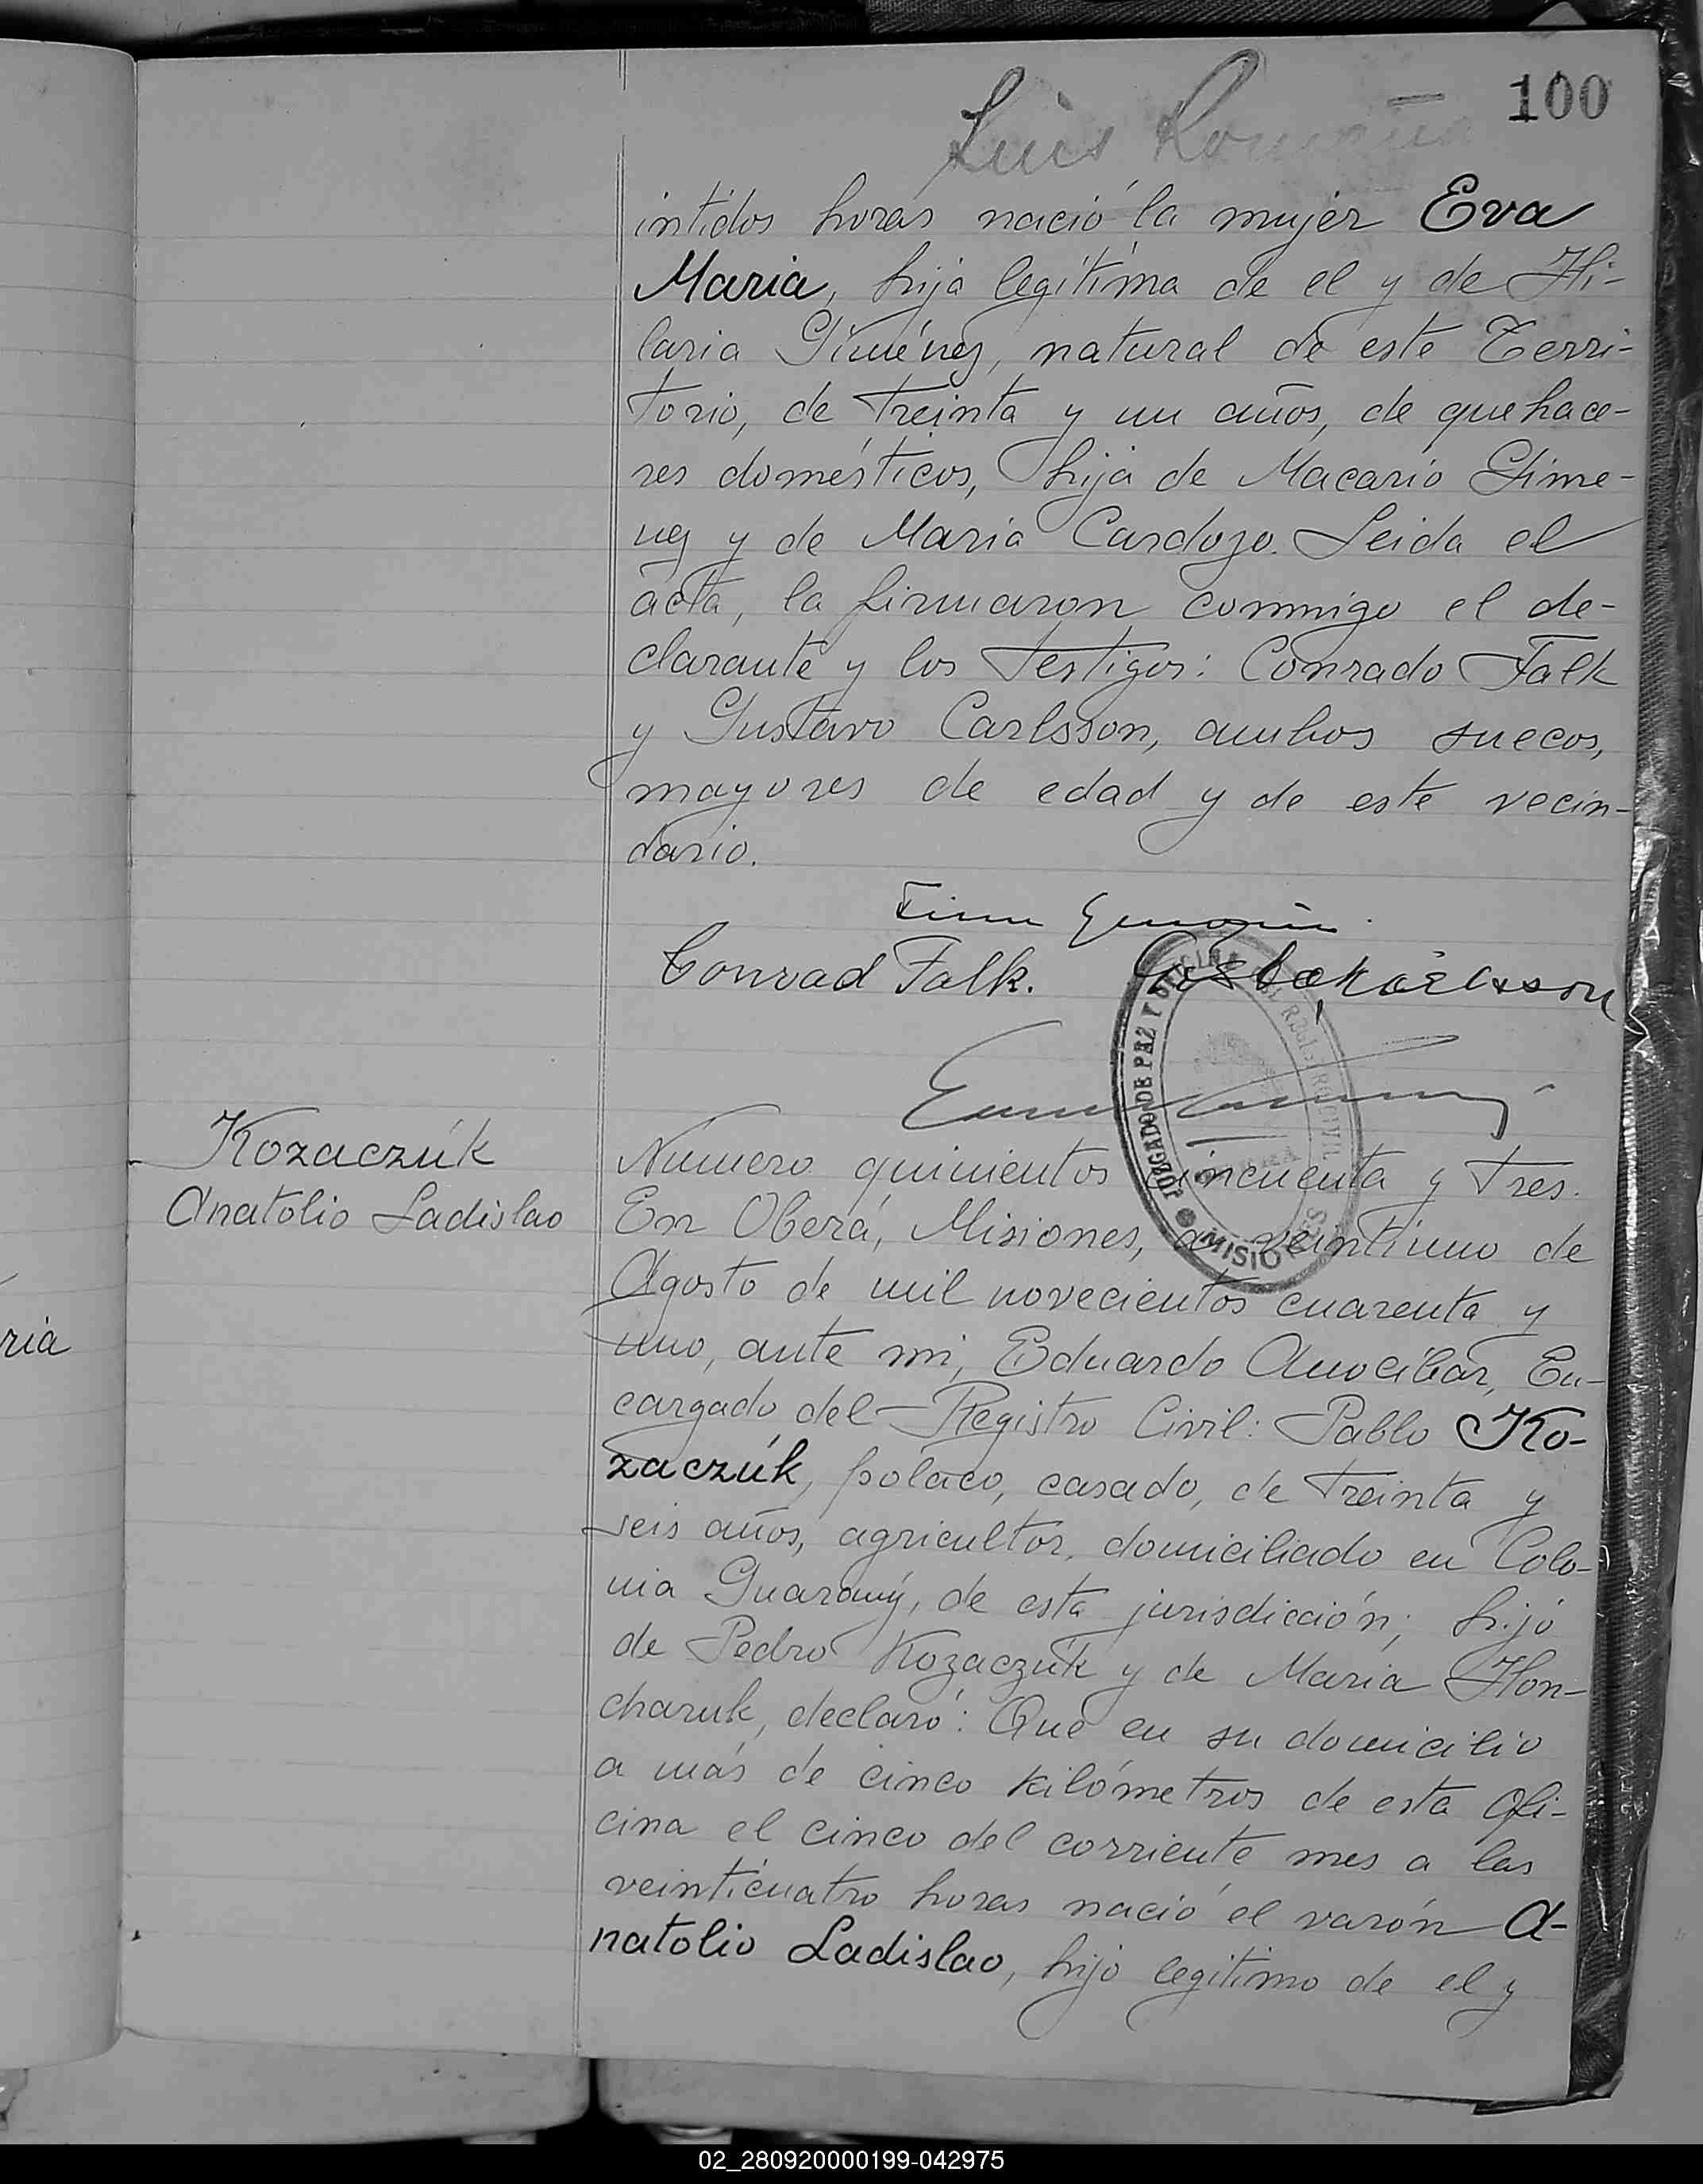 100
Luis
intidos horas nació la mujer Eva
Maria, hija legítima de el y de Hi-
laria Giménez, natural de este Terri-
torio, de treinta y un años, de quehace-
res domésticos, hija de Macario Gime-
nez y de Maria Cardozo. Leida el
acta, la firmaron conmigo el de-
clarante y los testigos: Conrado Falk
y Gustavo Carlsson, ambos suecos,
mayores de edad y de este vecin-
dario.
Conrad Falk.
JUZGADO DE PAZ Y OFICINA DEL REGISTRO CIVIL
MISIONES
Kozaczúk
Anatolio Ladislao
ria
Número quinientos cincuenta y tres.
En Oberá, Misiones, a veintiuno de
Agosto de mil novecientos cuarenta y
uno, ante mi, Eduardo Anocibar, En-
cargado del Registro Civil: Pablo Ko-
zaczúk, polaco, casado, de treinta y
seis años, agricultor, domiciliado en Colo-
nia Guarany, de esta jurisdicción; hijo
de Pedro Kozaczúk y de Maria Hon-
charuk, declaró: Que en su domicilio
a más de cinco kilómetros de esta Ofi-
cina el cinco del corriente mes a las
veinticuatro horas nació el varón A-
natolio Ladislao, hijo legitimo de el y
02_280920000199-042975